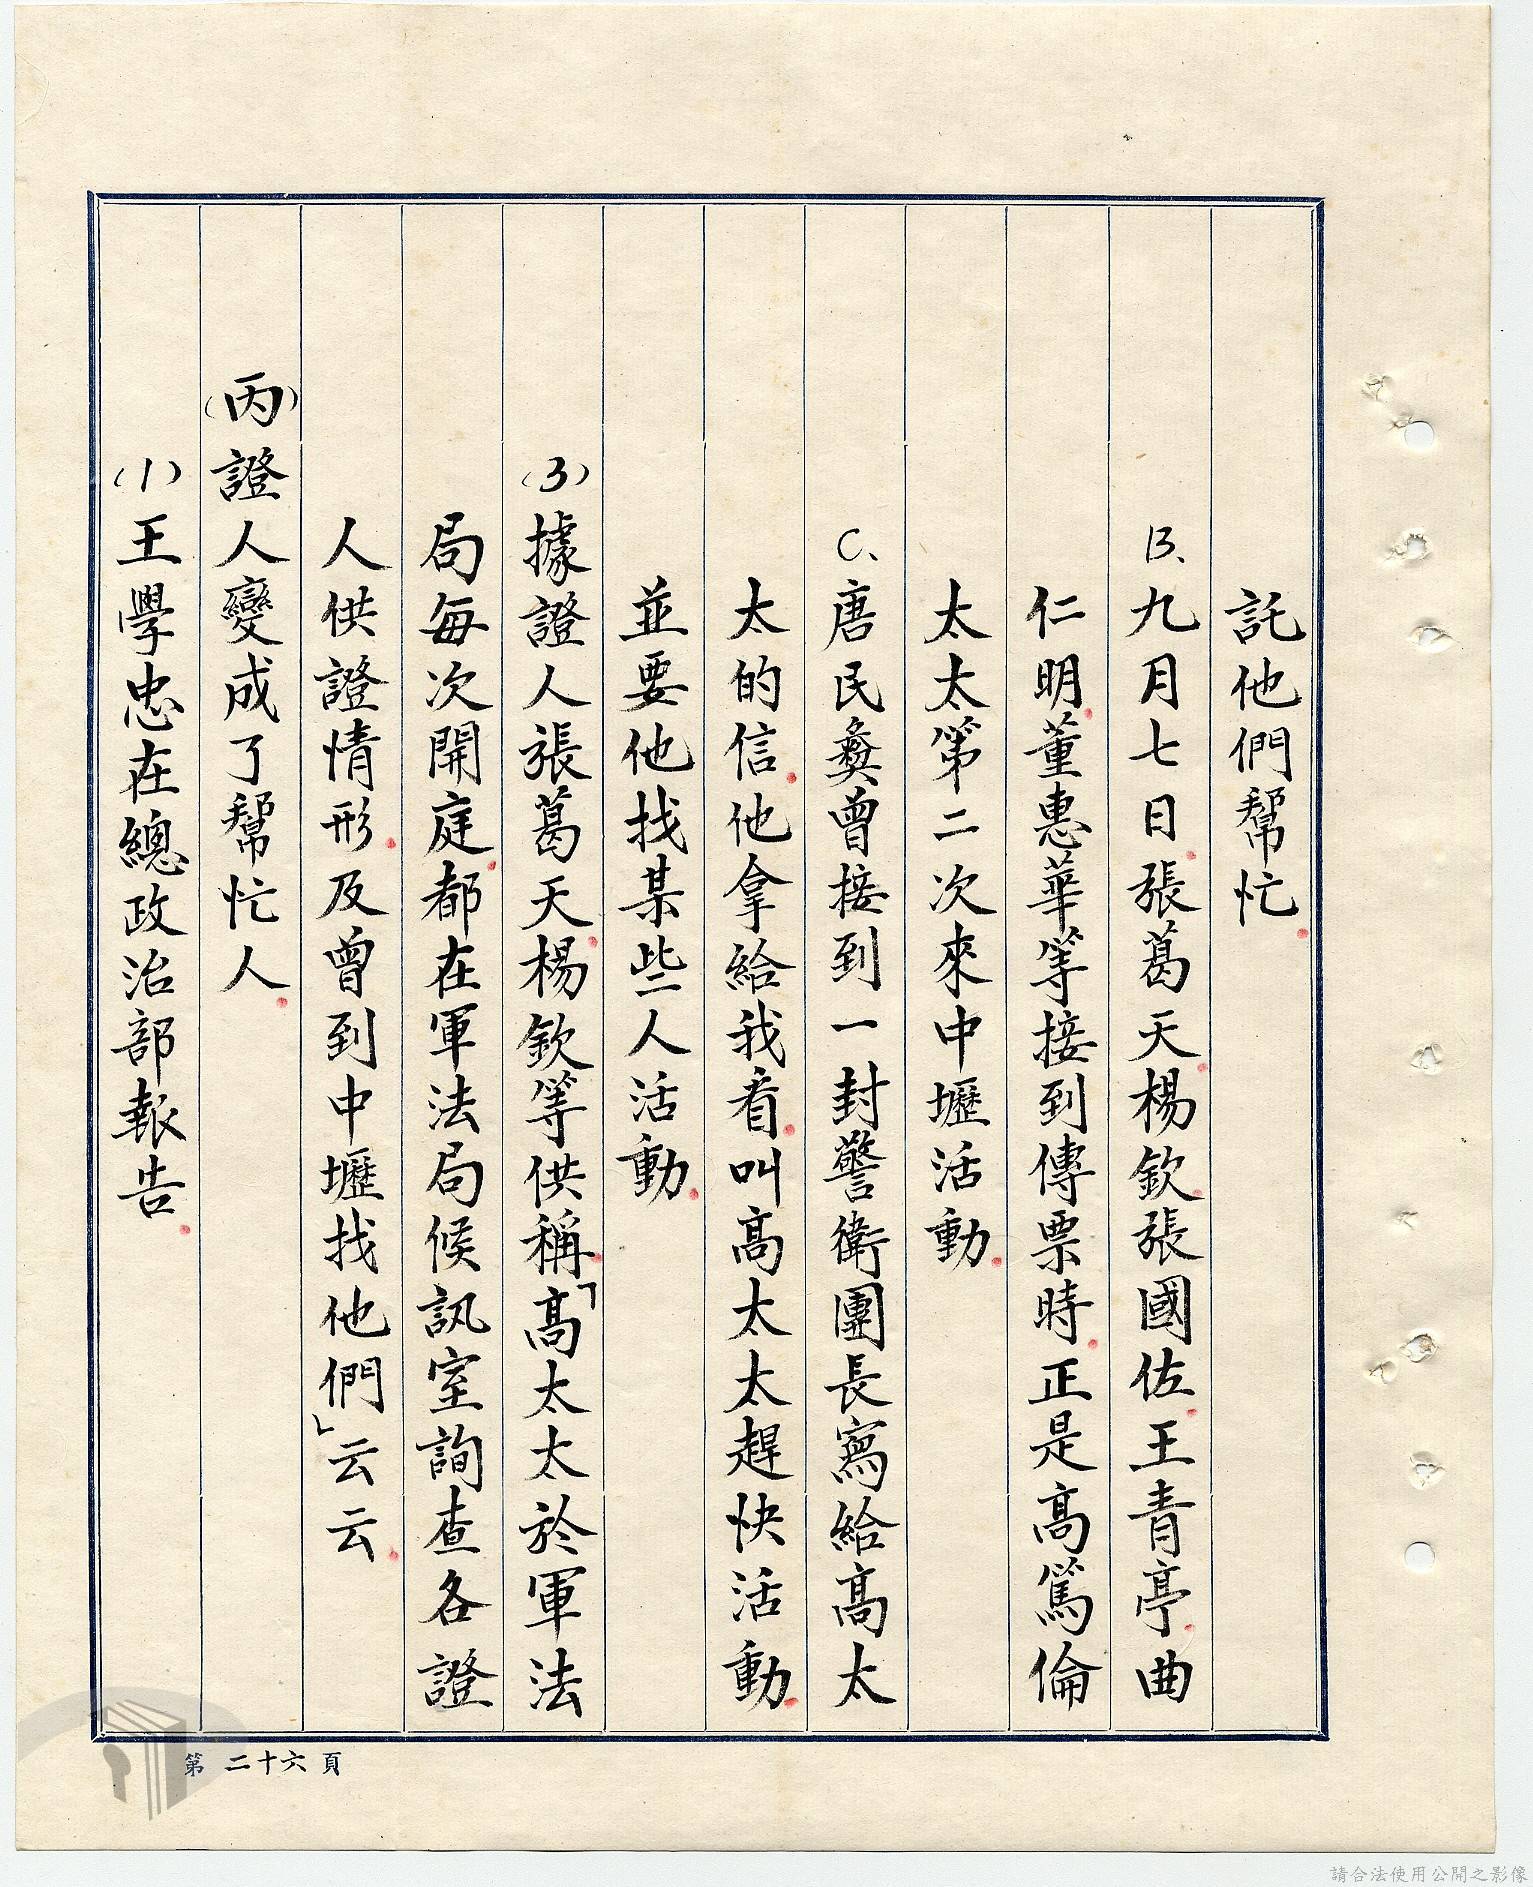 託他們幫忙.
B、九月七日.張葛天.楊欽.張國佐.王青亭.曲
仁明.董惠華等接到傳票時.正是高篤倫
太太第二次來中壢活動.
C、唐民彝曾接到一封警衛團長寫給高太
太的信.他拿給我看.叫高太太趕快活動.
並要他找某些人活動.
(3)據證人張葛天.楊欽等供稱.「高太太於軍法
局每次開庭.都在軍法局候訊室詢查各證
人供證情形.及曾到中壢找他們」云云.
(丙)證人變成了幫忙人.
(1)王學忠在總政治部報告.
第 二十六 頁
請合法使用公開之影像